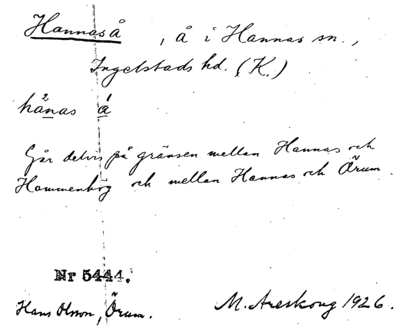 Hannaså, å i Hannas sn.,
Ingelstads hd. (K.)
hånas å
2 1
Går delvis på gränsen mellan Hannas och
Hammenhög och mellan Hannas och Örum.
Nr 5444.
Hans Olsson, Örum. M. Areskoug 1926.